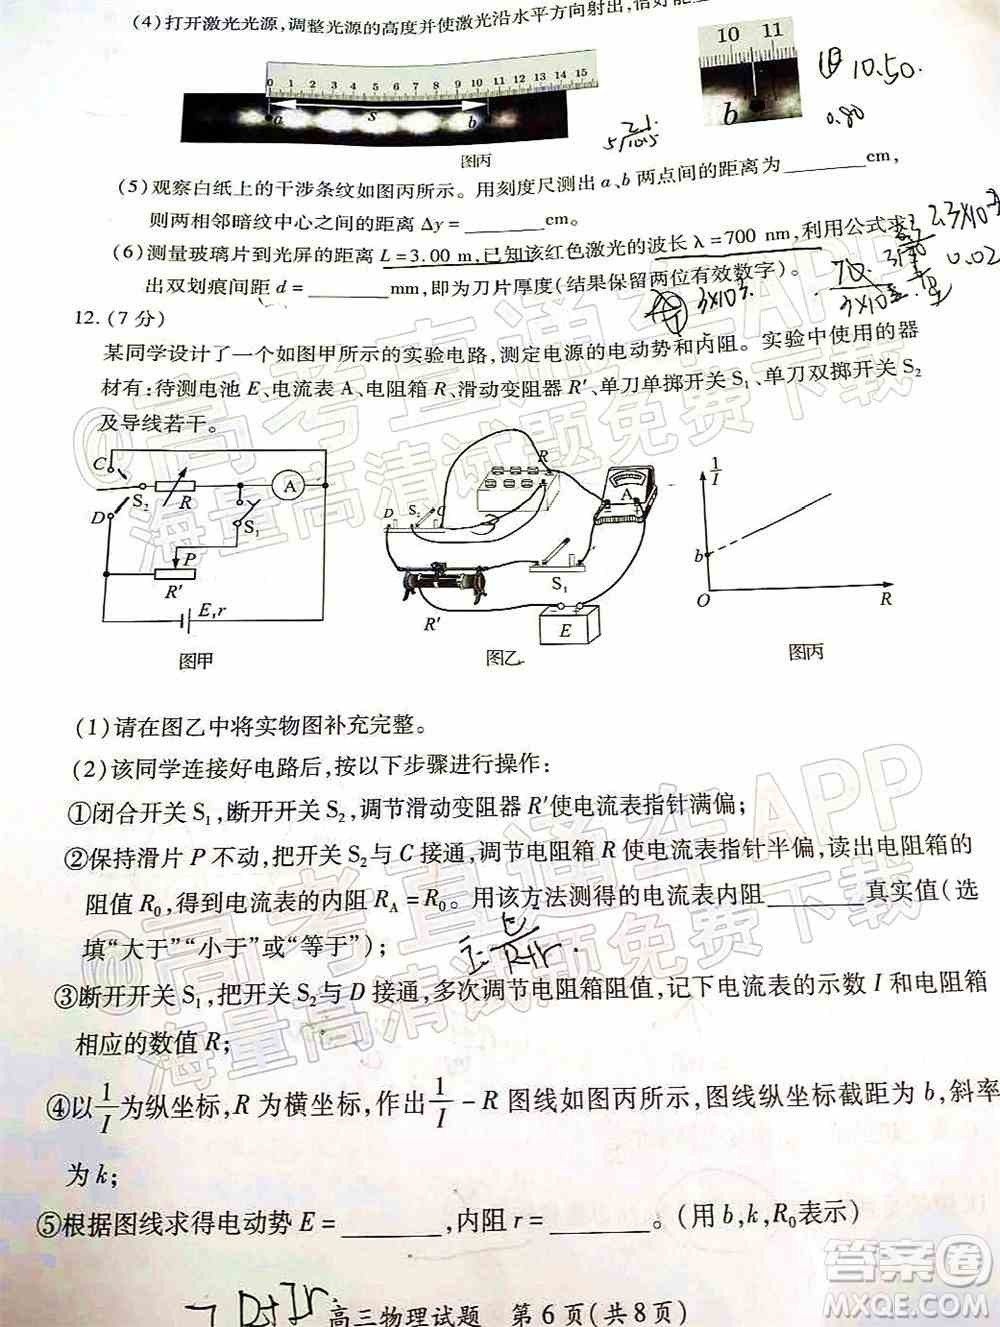 (4)打开激光光源,调整光源的高度并使激光沿水平方向射出,恰好能
0 1 2 3 4 5 6 7 8 9 10 11 12 13 14 15
a s b
10 11
b
10.50.
0.80
图丙
(5)观察白纸上的干涉条纹如图丙所示。用刻度尺测出a、b两点间的距离为________cm,
则两相邻暗纹中心之间的距离Δy=________cm。
(6)测量玻璃片到光屏的距离L=3.00 m,已知该红色激光的波长λ=700 nm,利用公式求
出双划痕间距d=________mm,即为刀片厚度(结果保留两位有效数字)。
0.02
12.(7分)
某同学设计了一个如图甲所示的实验电路,测定电源的电动势和内阻。实验中使用的器
材有:待测电池E、电流表A、电阻箱R、滑动变阻器R′、单刀单掷开关S₁、单刀双掷开关S₂
及导线若干。
C
S₂
R
A
D
S₁
P
R′
E,r
图甲
R
A
D S₂ C
S₁
R′
E
图乙
1/I
b
O
R
图丙
(1)请在图乙中将实物图补充完整。
(2)该同学连接好电路后,按以下步骤进行操作:
①闭合开关S₁,断开开关S₂,调节滑动变阻器R′使电流表指针满偏;
②保持滑片P不动,把开关S₂与C接通,调节电阻箱R使电流表指针半偏,读出电阻箱的
阻值R₀,得到电流表的内阻R_A=R₀。用该方法测得的电流表内阻________真实值(选
填“大于”“小于”或“等于”);
I=E/R+r
③断开开关S₁,把开关S₂与D接通,多次调节电阻箱阻值,记下电流表的示数I和电阻箱
相应的数值R;
④以1/I为纵坐标,R为横坐标,作出1/I-R图线如图丙所示,图线纵坐标截距为b,斜率
为k;
⑤根据图线求得电动势E=________,内阻r=________。(用b,k,R₀表示)
高三物理试题 第6页(共8页)
@高考直通车APP
海量高清试题免费下载
@高考直通车APP
海量高清试题免费下载
答案圈
MXQE.COM